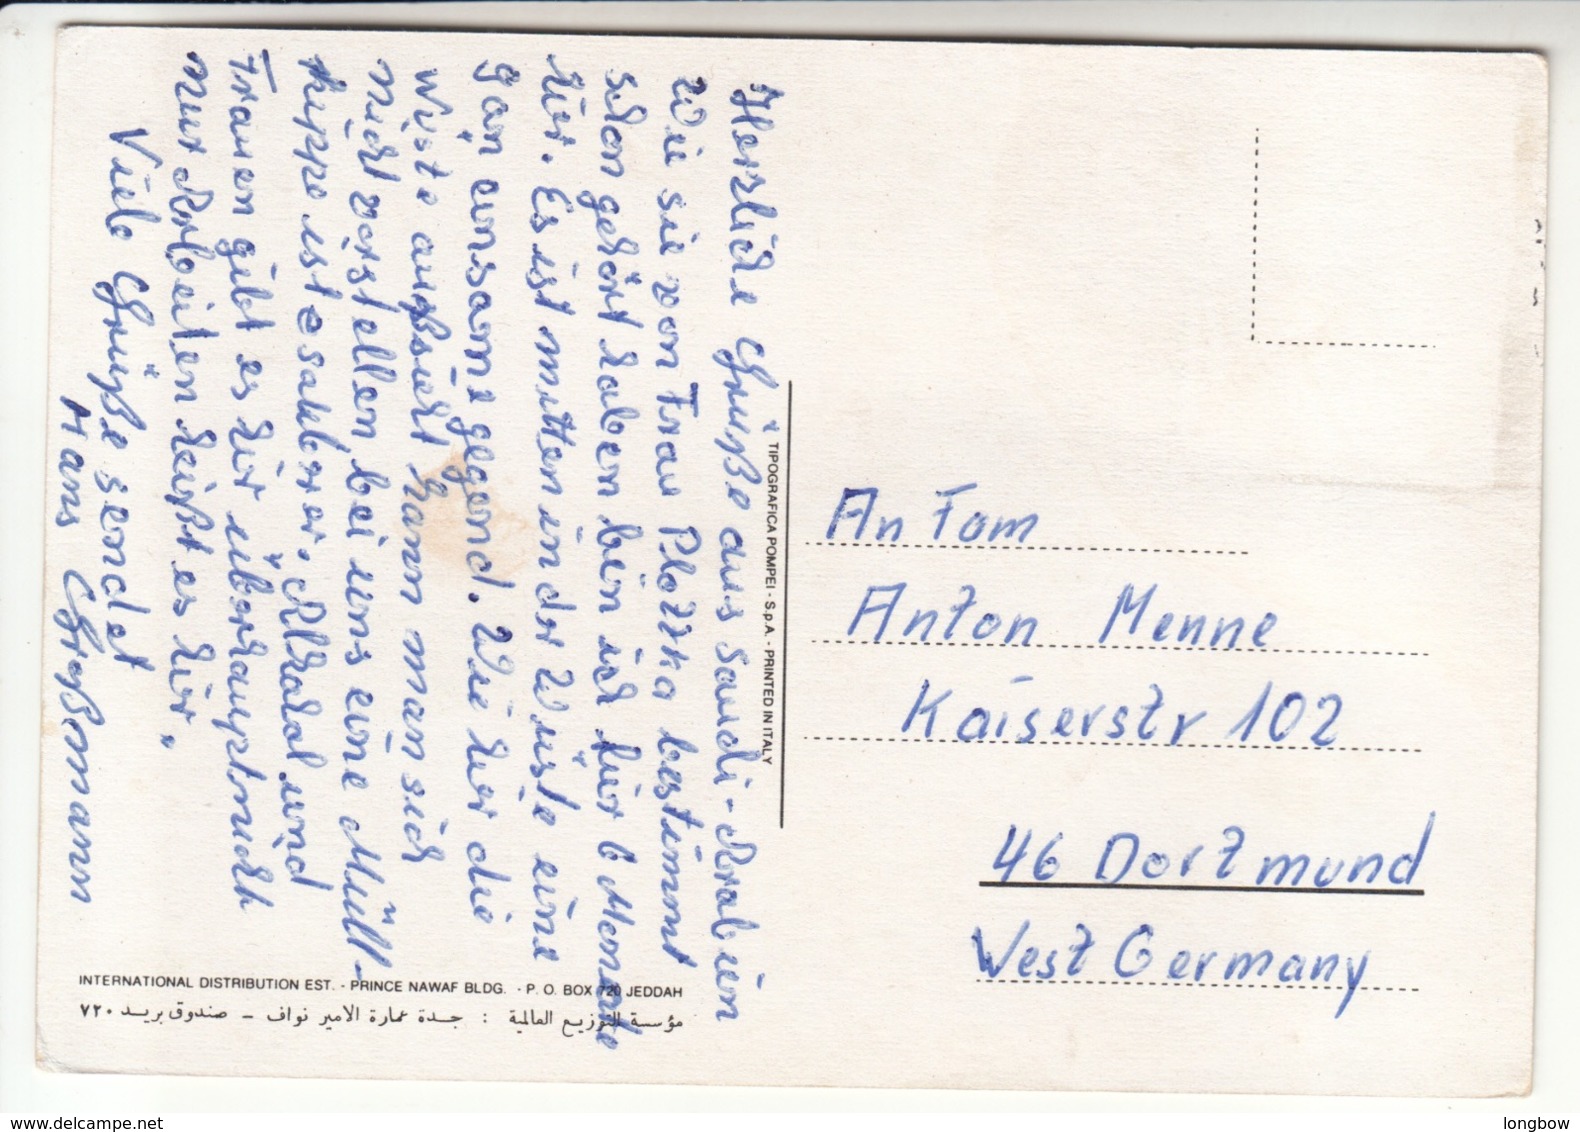 Herzliche Grüße aus Saudi-Arabien
Wie sie von Frau Plotzka bestimmt
schon gehört haben bin ich für 6 Monate
hier. Es ist mitten in der Wüste eine
ganz einsame gegend. Wie hier die
Wüste außsieht kann man sich
nicht vorstellen bei uns eine Müll-
kippe ist sauberer. Alkohol und
Frauen gibt es hir überhauptnicht
nur Arbeiten heißt es hir.
Viele Grüße sendet
Hans Großmann
TIPOGRAFICA POMPEI - S.p.A. - PRINTED IN ITALY
An Fam
Anton Menne
Kaiserstr 102
46 Dortmund
West Germany
INTERNATIONAL DISTRIBUTION EST. - PRINCE NAWAF BLDG. - P. O. BOX 720 JEDDAH
مؤسسة التوزيع العالمية : جدة عمارة الامير نواف - صندوق بريد ٧٢٠
delcampe.net
longbow